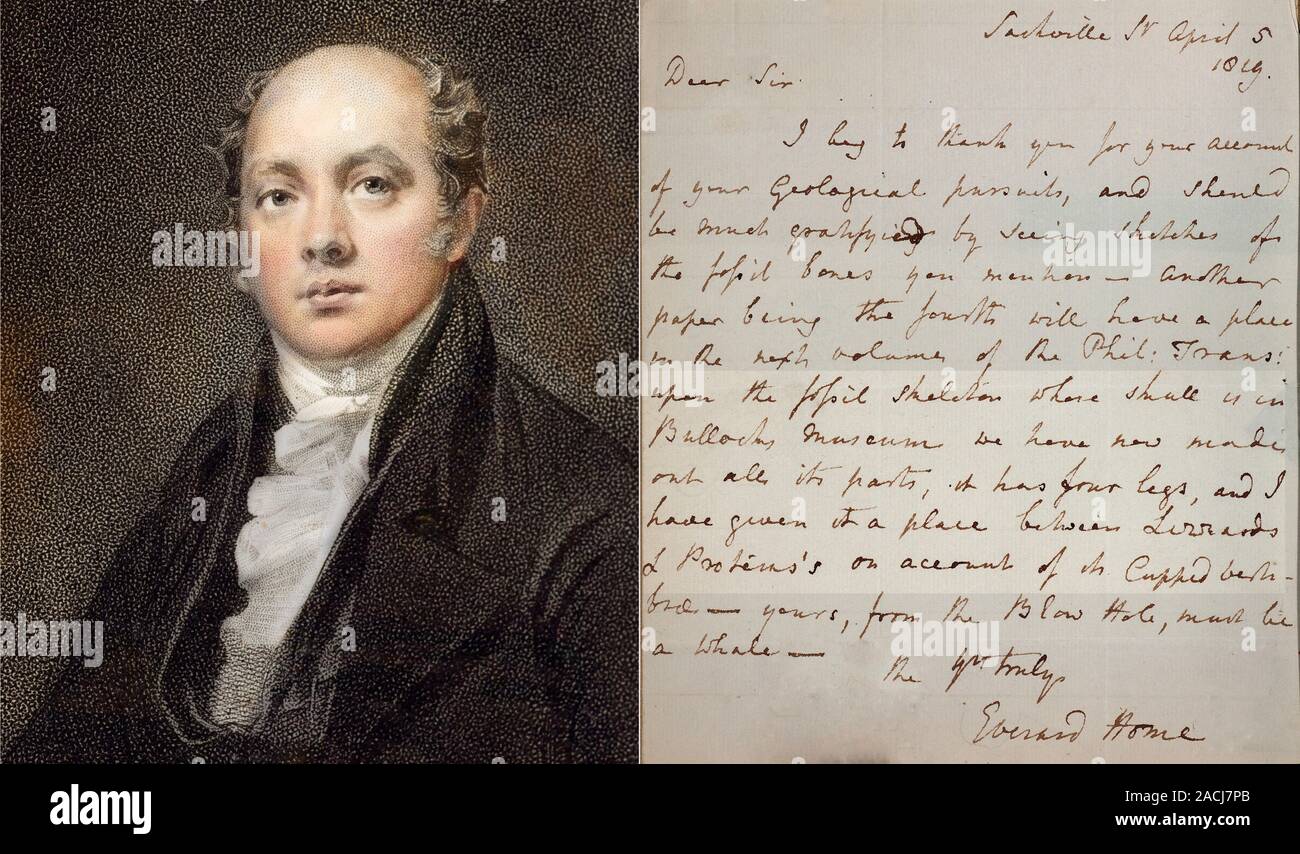 Sackville St April 5
1819.
Dear Sir.
I beg to thank you for your account
of your Geological pursuits, and should
be much gratifyied by seeing sketches of
the fossil bones you mention — another
paper being the fourth will have a place
in the next volume of the Phil: Trans:
upon the fossil skeleton whose skull is in
Bullocks museum we have now made
out all its parts, it has four legs, and I
have given it a place between Lizzards
& Proteus's on account of its Cupped verte-
bræ — yours, from the Blow Hole, must be
a whale —
yrs truly
Everard Home
alamy
alamy
alamy
Image ID: 2ACJ7PB
www.alamy.com